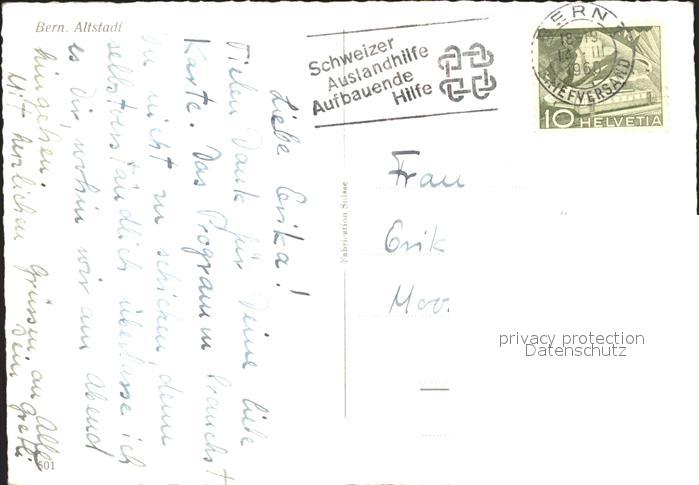 Bern. Altstadt
Liebe Erika!
Vielen Dank für Deine liebe
Karte. Das Programm brauchst
Du nicht zu schicken, denn
selbstverständlich überlasse ich
es Dir, wohin wir am Abend
hingehen.
Mit herzlichen Grüssen an Alle
Dein Gretli
601
Fabrication Suisse
Schweizer
Auslandhilfe
Aufbauende
Hilfe
BERN
BRIEFVERSAND
10 HELVETIA
Frau
Erik
Moo.
privacy protection
Datenschutz